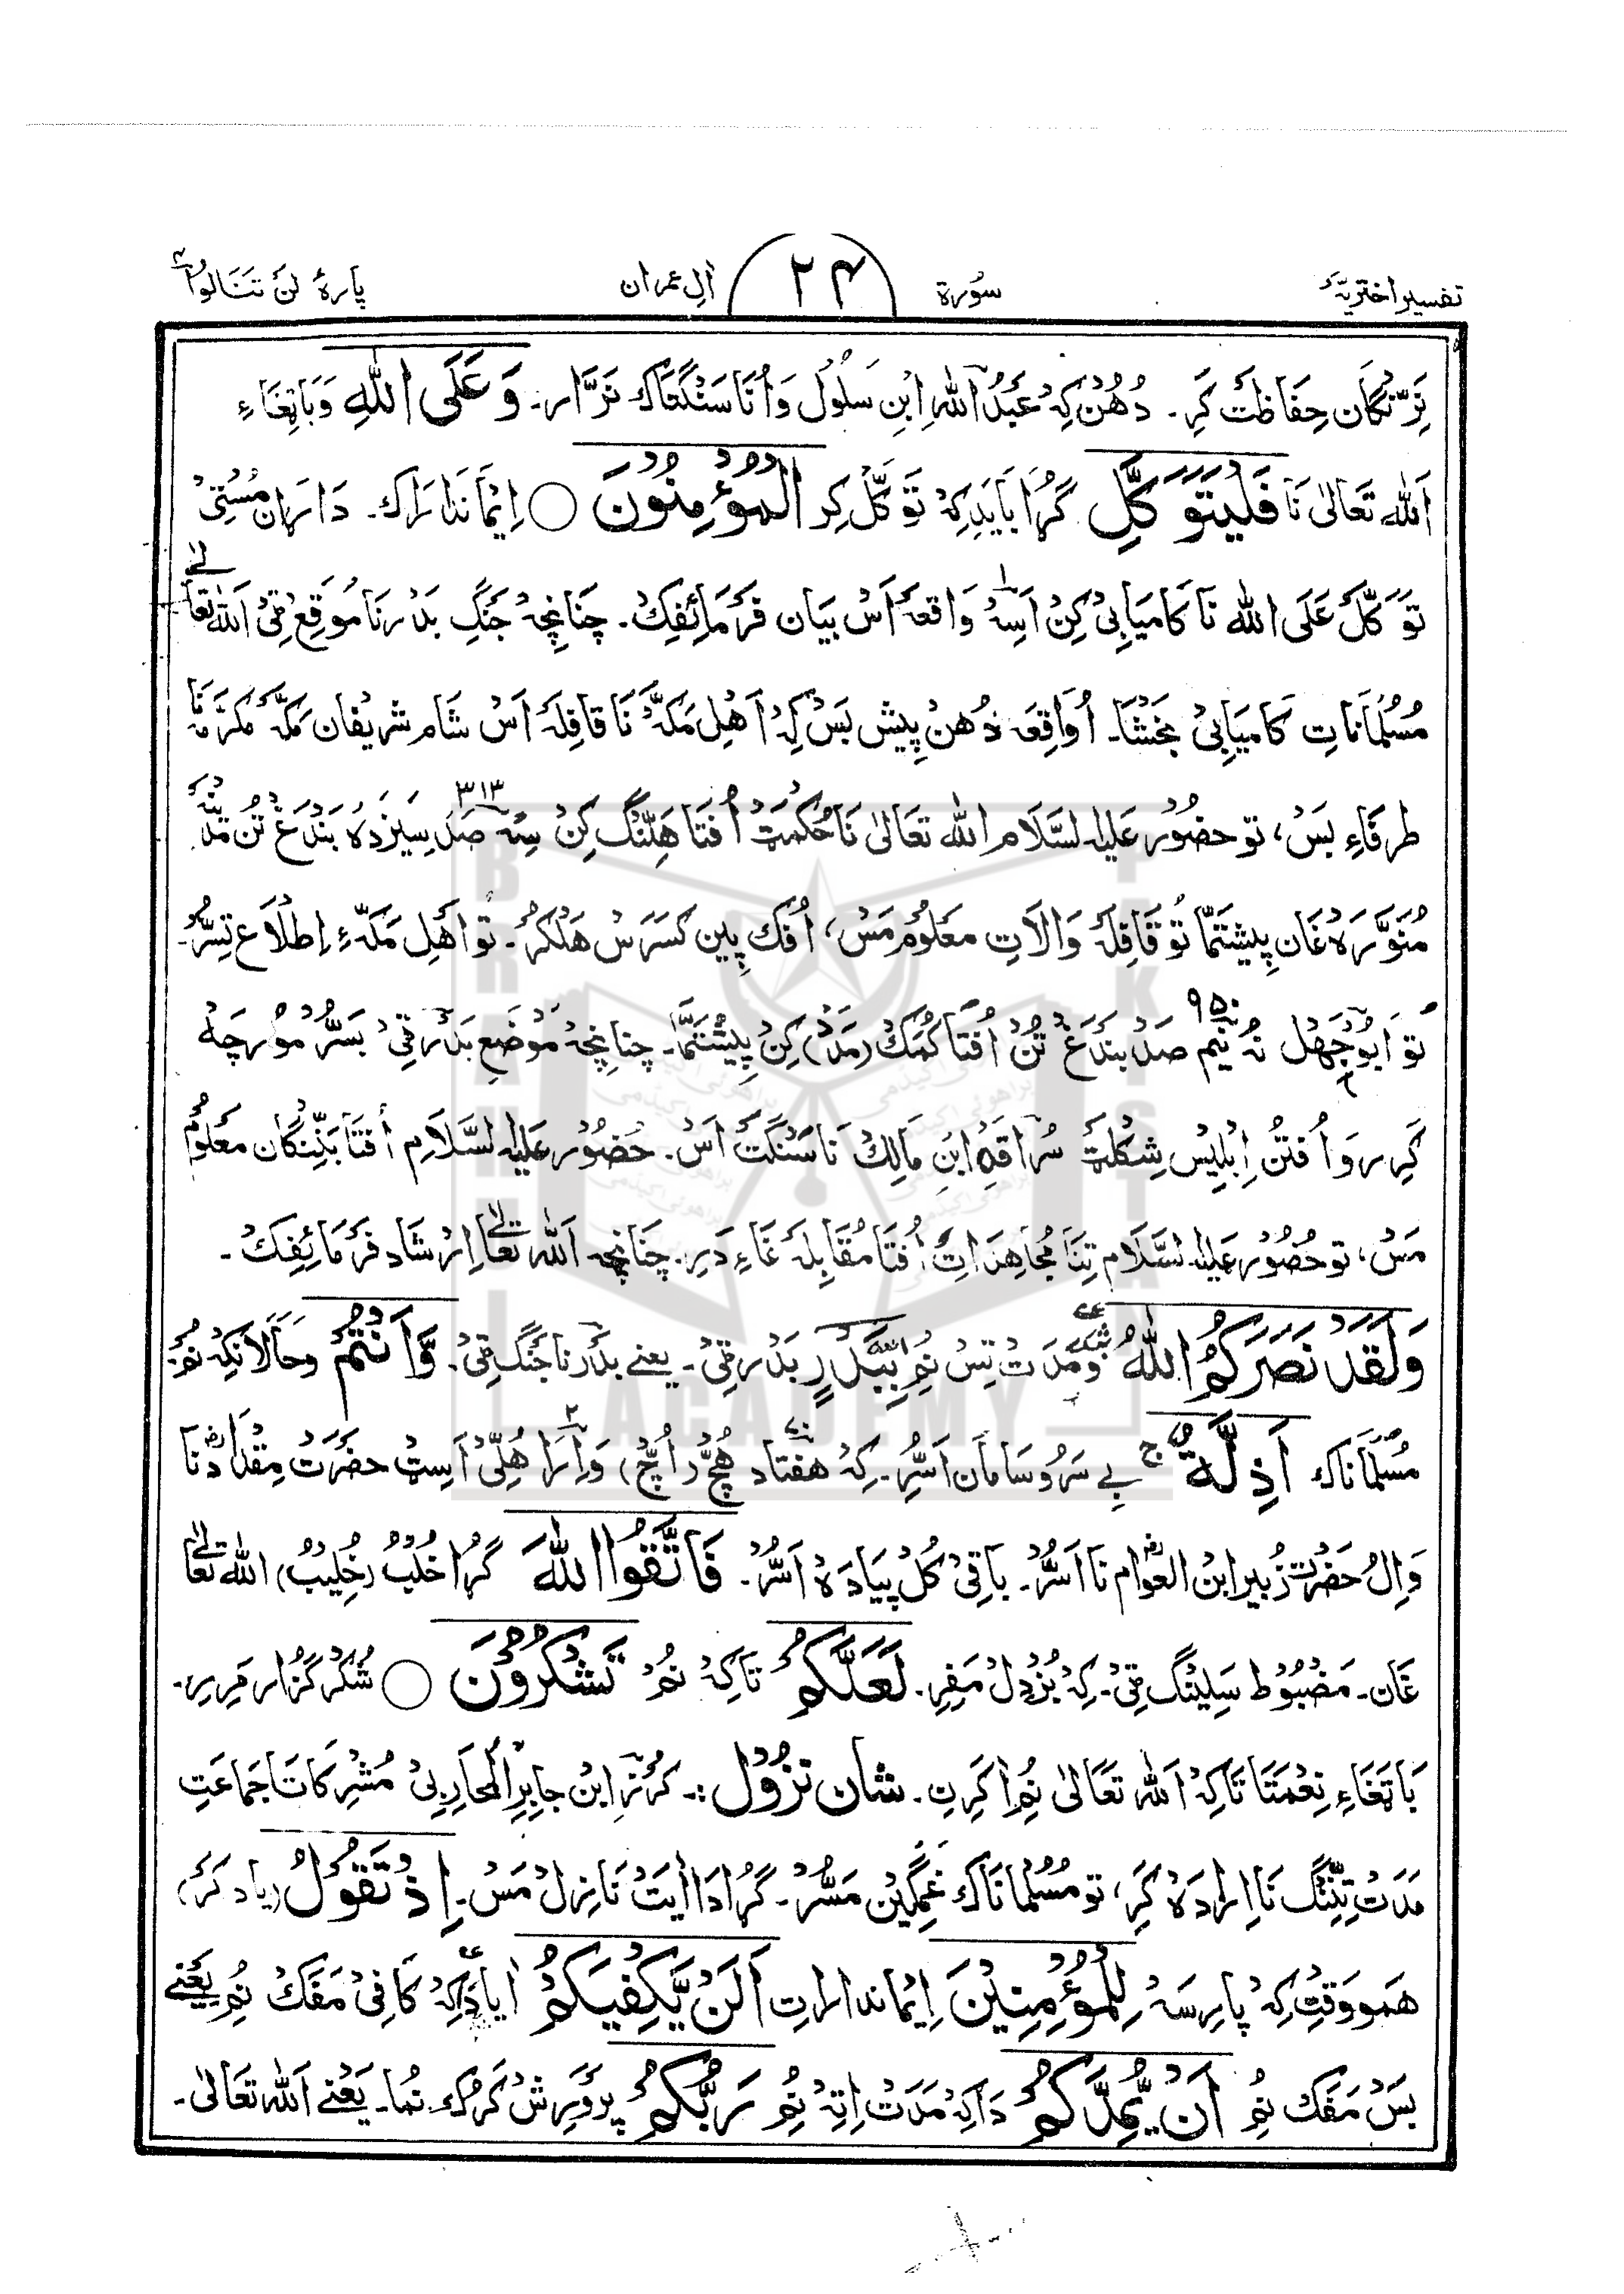 تفسیر اختریہ سُورة ۲۴ اٰلِ عمران پارۂ لَنْ تَنَالُوا ۴
نَرِّنگان حِفَاظَتْ کَرِ۔ دُھُنْ کِہْ عَبْدُ اللّٰهِ ابْنِ سَلُوْلْ وَ اُنَا سَنْگَتَاک نَرَّار۔ وَعَلَى اللّٰهِ وَ بَاتِغَاءِ
اَللّٰه تَعَالٰی نَا فَلْيَتَوَكَّلِ گُڑا بَايَدِ کِہْ تَوَکُّلْ کِر الْمُؤْمِنُوْنَ ○ اِیْمَاندَاراک۔ دَارَان مُسْتِیْ
تَوَکُّلْ عَلَی اللّٰه نَا کَامْیَابِیْ کِنْ اَسِہْ وَاقعہ اَسْ بَیَان فَرْمَائِفِکْ۔ چُنَانِچِہْ جَنْگِ بَدْر نَا مُوقِعْ قِیْ اَللّٰه تَعَالٰی
مُسُلْمَانَاتِ کَامْیَابِیْ بَخْشَا۔ اُوَاقِعَہ دُھُنْ پیش بَسْ کِہْ اَھْلِ مَکَّہْ نَا قَافِلَہْ اَسْ شَام شریفان مَکَّہْ مُکَرَّمَہ نَا
طرفَاءِ بَسْ، تو حضُوْر عَلَیْہِ السَّلَام اللّٰه تَعَالٰی نَا حُکْمَتْ اُفتَا ھَلِّنْگ کِنْ سِہْ صَدْ سِیْزدَہْ ۳۱۳ بَنْدَغْ تُنْ مَدِیْنَہْ
مُنَوَّرَہْ غَان پِیشَتَمَّا تَوْ قَافِلَہْ وَالَاتِ مَعْلُوْم مَسْ، اُفک پِین کَسَرَسْ ھَلْکُر۔ تو اَھْلِ مَکَّہْ ءِ اِطْلَاع تِسُّرْ۔
تَو اَبُوْجَھْل نُہْ نِیْم صَدْ ۹۵۰ بَنْدَغْ تُنْ اُفْتَا کُمَکْ (مَدَدْ) کِنْ پِیْشَتَمَّا۔ چنانِچِہْ مَوْضَعِ بَدْر قِیْ بَسُّرْ مُوْرچَہْ
کَرِر وَ اُفتُنْ اِبْلِیْس شِکْلَتْ سُرَاقَہْ ابْنِ مَالِکْ نَا سَنْگَتْ اَسْ۔ حُضُوْر عَلَیْہِ السَّلَامِ اُفتَا بَنِّنگان مَعْلُوْم
مَسْ، تو حُضُوْر عَلَیْہِ السَّلَام تِنَا مُجَاھِدَاتِ اُفتَا مُقَابِلَہ غَاءِ دَرِ۔ چُنَانچِہ اَللّٰه تَعَالٰی اِرْشَاد فَرْمَائِفِکْ۔
وَلَقَدْ نَصَرَكُمُ اللّٰهُ وَ مَدَتْ تِسْ نُمِ اللّٰہ بِبَدْرٍ بَدْر قِیْ۔ یعنے بَدْر نَا جَنْگ قِیْ۔ وَّاَنْتُمْ وحَالَانکِہْ نُمْ
مُسُلْمَاناک اَذِلَّةٌ ج بے سَرُوسَامَان اَسُّرِ۔ کِہْ ھَفْتَاد ۷۰ ھُچّ (اُچّ) وَ اِرَا ۲ ھُلِّیْ اَسِٹْ حضَرتْ مِقْدَادْ نَا
وَ اِلُ حَضرتْ زُبَیر ابْن العَوَّام نَا اَسُّرْ۔ باقِیْ کُلْ پیَادَہْ اَسُّرْ۔ فَاتَّقُوا اللّٰهَ گُڑا خُلْبْ (خُلِیْبْ) اللّٰه تَعَالٰی
غَان۔ مَضْبُوْط سَلِیْنگ قِیْ۔ کِہْ بُزْدِلْ مَفِرِ۔ لَعَلَّكُمْ تَاکِہْ نُمْ تَشْكُرُوْنَ ○ شُکْرگُزار مَرِیر۔
بَاتغَاءِ نِعْمَتَا تَاکِہْ اَللّٰه تَعَالٰی نُم ٓا کَرِنِ۔ شان نزُوْل :۔ کُرْز ابْن جابِر المُحَارِبِیْ مُشْرِکَاتَا جَمَاعَتِ
مَدَتْ تِنِّنْگ نَا اِرَادَہْ کَرِ، تو مُسُلْمَانَاک غَمْگِیْن مَسُّرْ۔ گُڑا دَا اٰیَتْ نَازِلْ مَسْ۔ اِذْ تَقُوْلُ (یاد کَرْ)
ھَمو وَقْتِ کِہْ پارِسَہ لِلْمُؤْمِنِيْنَ اِیْمَاندارات اَلَنْ يَّكْفِيَكُمْ اٰیَا دَاکِہْ کَافِیْ مَفَکْ نُمِ یَعْنے
بَسْ مَفَک نُمِ اَنْ يُّمِدَّكُمْ دَاکِہْ مَدَتْ اِتِہْ نُمِ رَبُّكُمْ پَروَرِشْ کَرُک نُما۔ یَعْنے اَللّٰه تَعَالٰی۔
BRAHUI ACADEMY PAKISTAN
براهوئی اکیڈمی